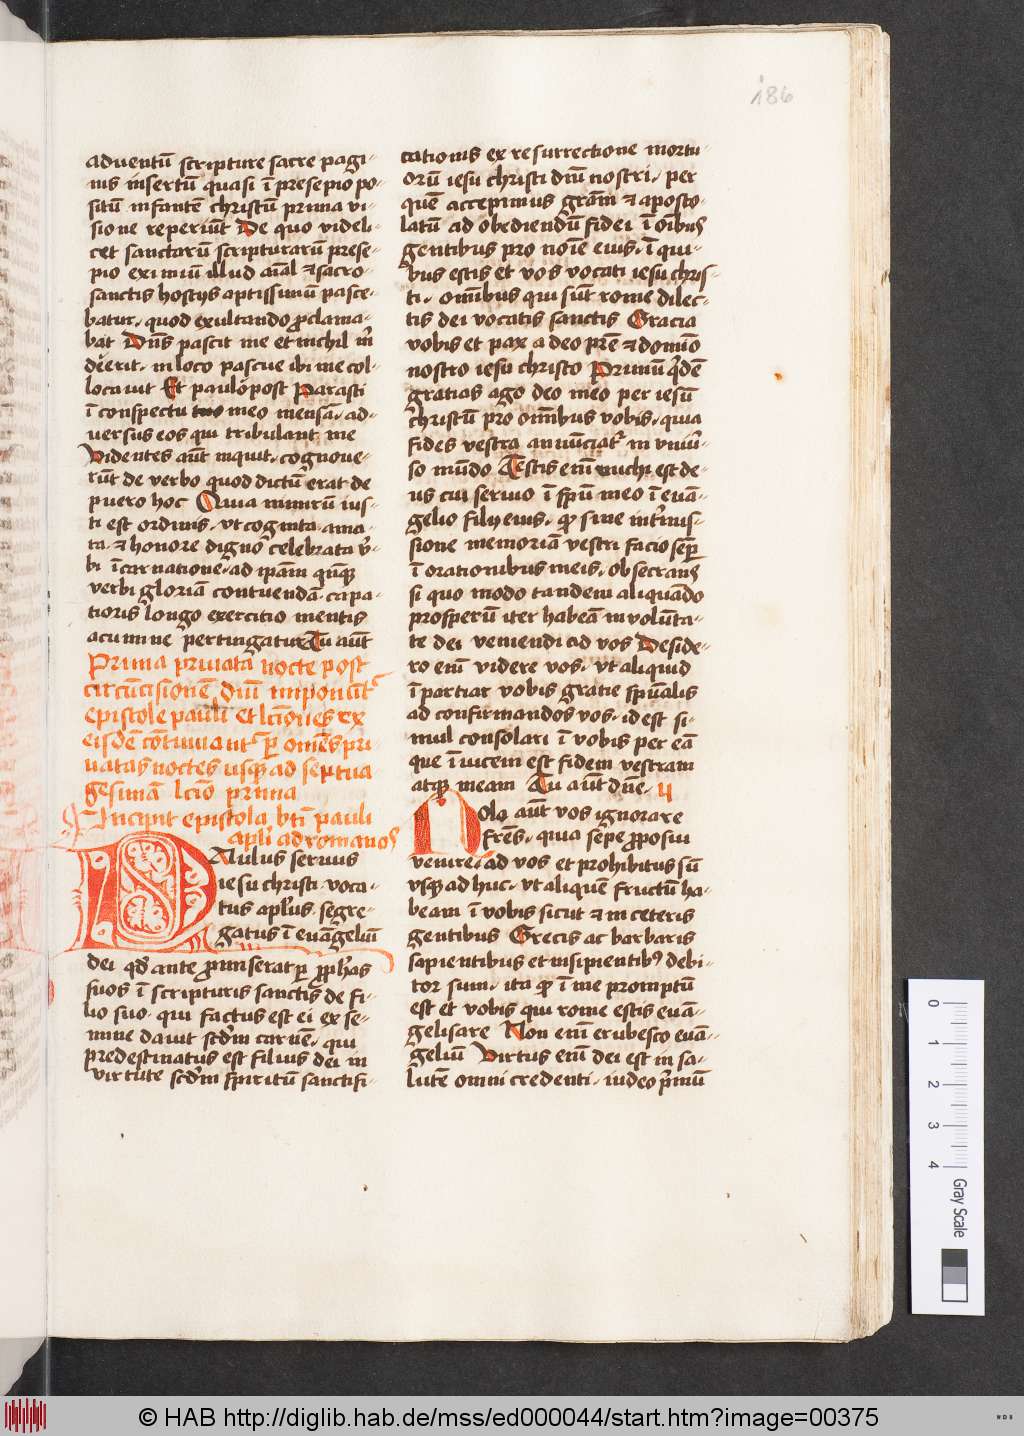 186
adventū scripture sacre pagi-
nis insertū quasi ī presepio po-
sitū infantē christū prima vi-
sione reperiūt De quo videli-
cet sanctarū scripturarū prese-
pio eximiū illud aīal et sacro-
sanctis hostijs aptissimū pasce-
batur, quod exultando proclama-
bat Dn̄s pascit me et nichil m̄
deerit, in loco pascue ibi me col-
locavit Et paulopost Parasti
ī conspectu meo mensā, ad-
versus eos qui tribulant me
Videntes aūt inquit, cognove-
rūt de verbo quod dictū erat de
puero hoc Quia nimirū ius-
ti est ordinis, vt cognita amata
ta et honore digno celebrata v̄-
bi īcarnatione, ad ipām
verbi gloriā contuendā capa-
tioris longo exercitio mentis
acumine pertingatur Tu aūt
Prima privata nocte post
circūcisionē dn̄i imponūt
epistole pauli et lc̄iones ex
eisdē cōtinuant p omēs pri-
vatas noctes usq ad septua-
gesimā lc̄io prima
Incipit epistola bt̄i pauli
apl̄i ad romanos
PAulus servus
iesu christi voca-
tus apl̄us, segre-
gatus ī evāgeliū
dei qd ante promiserat p pph̄as
suos ī scripturis sanctis de fi-
lio suo, qui factus est ei ex se-
mine david scdm carnē, qui
predestinatus est filius dei in
virtute scdm spiritū sanctifi-
cationis ex resurrectione mortu-
orū iesu christi dn̄i nostri, per
quē accepimus grām et aposto-
latū ad obediendū fidei ī oībus
gentibus pro noīe eius, ī qui-
bus estis et vos vocati iesu chris-
ti, omībus qui sūt rome dilec-
tis dei vocatis sanctis Gracia
vobis et pax a deo prē et domīo
nostro iesu christo Primū qdē
gratias ago deo meo per iesū
christū pro omībus vobis, quia
fides vestra annūciat in univ-
so mūdo Testis em̄ michi est de-
us cui servio ī spū meo ī evā-
gelio filij eius, q sine intmis-
sione memoriā vestri facio semp
ī orationibus meis, obsecrans
si quo modo tandem aliquādo
prosperū iter habeā in volūta-
te dei veniendi ad vos Deside-
ro em̄ videre vos, vt aliquid
īpartiar vobis gratie spūalis
ad confirmandos vos, id est si-
mul consolari ī vobis per eā
que īvicem est fidem vestram
atq meam Tu aūt dn̄e, ij
NOlo aūt vos ignorare
frēs, quia sepe proposui
venire, ad vos et prohibitus sū
vsq ad huc, vt aliquē fructū ha-
beam ī vobis sicut et in ceteris
gentibus Grecis ac barbaris
sapientibus et insipientib debi-
tor sum, ita q ī me promptū
est et vobis qui rome estis evā-
gelisare Non em̄ erubesco evā-
geliū Virtus em̄ dei est in sa-
lutē omni credenti, iudeo pmū
0 1 2 3 4 Gray Scale
© HAB http://diglib.hab.de/mss/ed000044/start.htm?image=00375
WDB